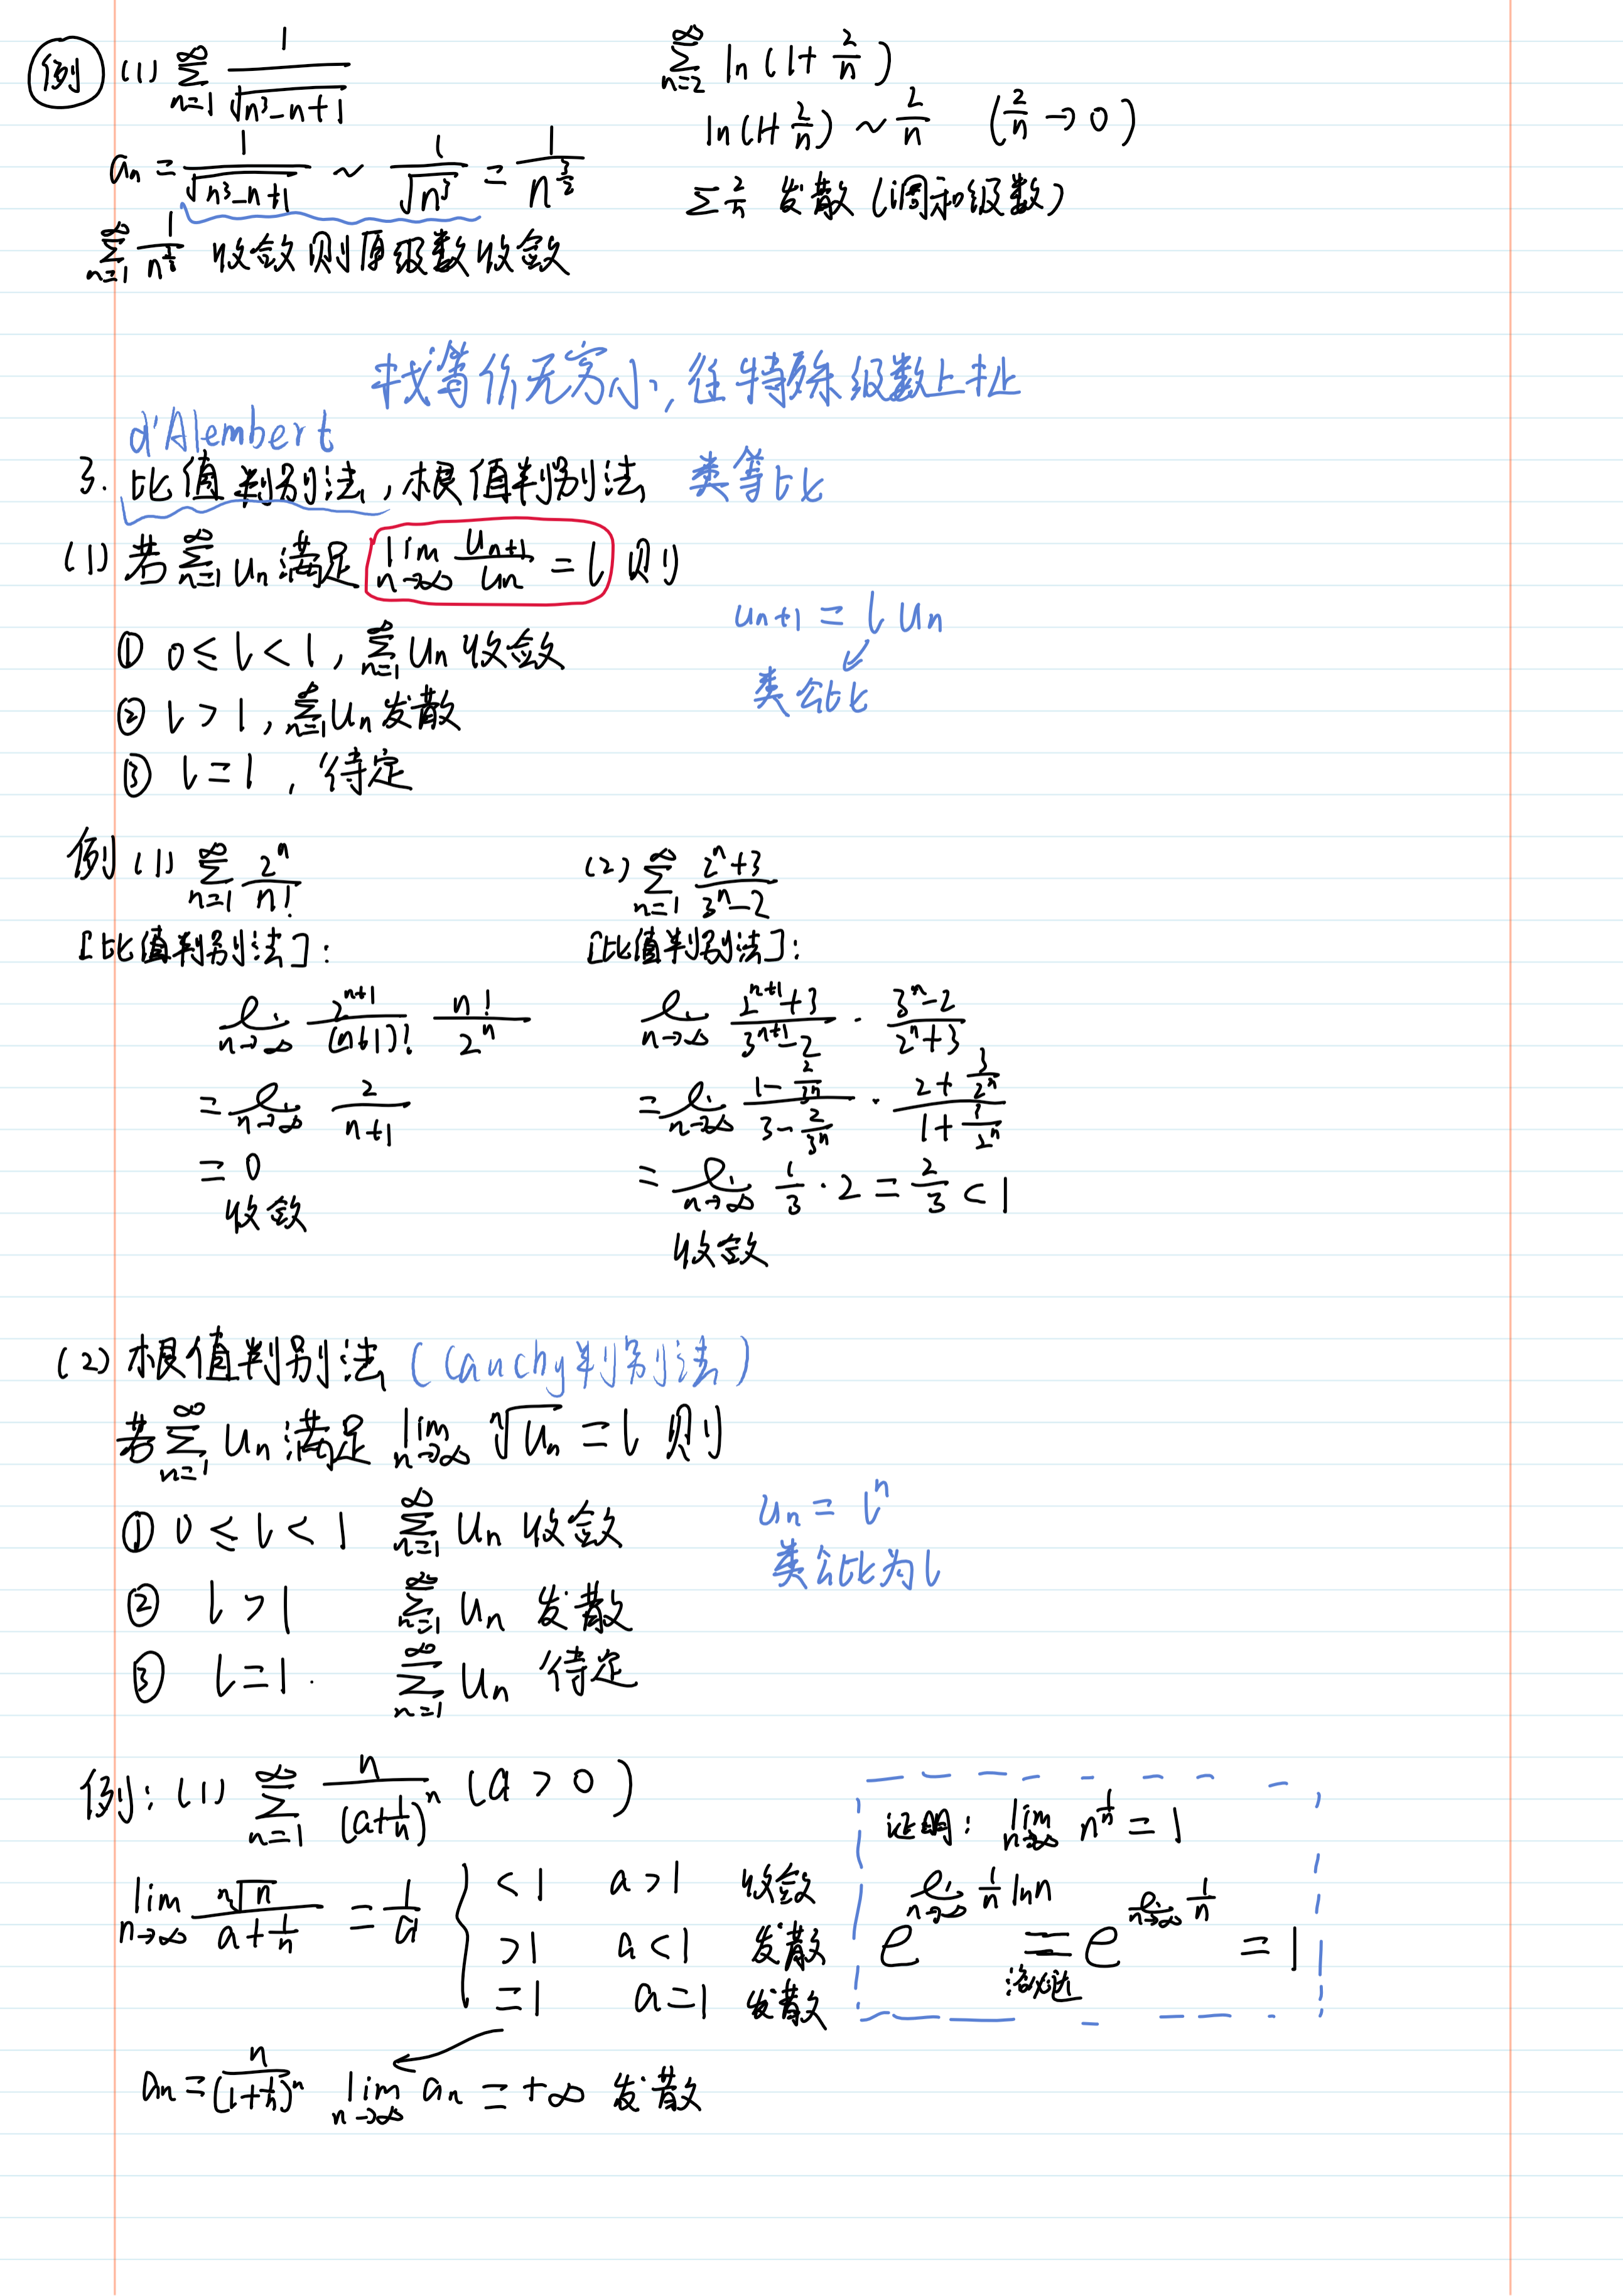 例 (1) ∑_{n=1}^{∞} 1/√(n³-n+1)
a_n = 1/√(n³-n+1) ~ 1/√(n³) = 1/n^{3/2}
∑_{n=1}^{∞} 1/n^{3/2} 收敛则原级数收敛
∑_{n=2}^{∞} ln(1+2/n)
ln(1+2/n) ~ 2/n (2/n→0)
∑2/n 发散(调和级数)
找等价无穷小,往特殊级数上扯
d'Alembert
3. 比值判别法,根值判别法 类等比
(1) 若 ∑_{n=1}^{∞} u_n 满足 lim_{n→∞} u_{n+1}/u_n = l 则
① 0≤l<1, ∑_{n=1}^{∞} u_n 收敛
② l>1, ∑_{n=1}^{∞} u_n 发散
③ l=1, 待定
u_{n+1} = l u_n
类公比
例 (1) ∑_{n=1}^{∞} 2^n/n!
[比值判别法]:
lim_{n→∞} 2^{n+1}/(n+1)! n!/2^n
= lim_{n→∞} 2/(n+1)
= 0
收敛
(2) ∑_{n=1}^{∞} (2^n+3)/(3^n-2)
[比值判别法]:
lim_{n→∞} (2^{n+1}+3)/(3^{n+1}-2) · (3^n-2)/(2^n+3)
= lim_{n→∞} (1-2/3^n)/(3-2/3^n) · (2+3/2^n)/(1+3/2^n)
= lim_{n→∞} 1/3 · 2 = 2/3 < 1
收敛
(2) 根值判别法 (Cauchy判别法)
若 ∑_{n=1}^{∞} u_n 满足 lim_{n→∞} ⁿ√u_n = l 则
① 0≤l<1 ∑_{n=1}^{∞} u_n 收敛
② l>1 ∑_{n=1}^{∞} u_n 发散
③ l=1. ∑_{n=1}^{∞} u_n 待定
u_n = l^n
类公比为l
例: (1) ∑_{n=1}^{∞} n/(a+1/n)^n (a>0)
lim_{n→∞} ⁿ√n/(a+1/n) = 1/a { <1 a>1 收敛
>1 a<1 发散
=1 a=1 发散
a_n = n/(1+1/n)^n lim_{n→∞} a_n = +∞ 发散
证明: lim_{n→∞} n^{1/n} = 1
e^{lim_{n→∞} 1/n ln n} = e^{lim_{n→∞} 1/n} = 1
洛必达